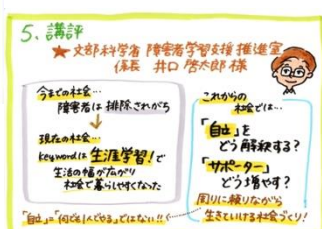 5. 講評
★文部科学省 障害者学習支援推進室
係長 井口 啓太郎 様
今までの社会…
障害者は 排除されがち
↓
現在の社会…
keywordは 生涯学習!で
生活の幅が広がり
社会で暮らしやすくなった
これからの
社会では…
「自立」を
どう解釈する?
「サポーター」
どう増やす?
周りに頼りながら
生きていける社会づくり!
「自立」=「何でも1人でやる」ではない!!